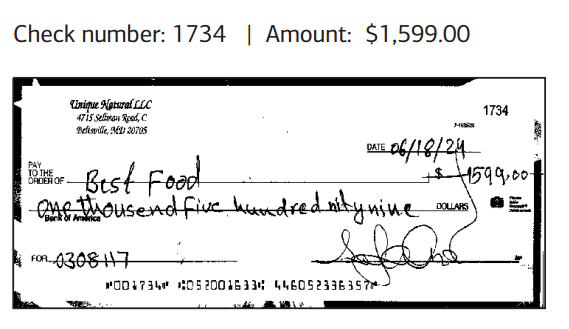 Check number: 1734 | Amount: $1,599.00
Unique Natural LLC
4715 Sellman Road, C
Beltsville, MD 20705
1734
DATE 06/18/24
PAY
TO THE
ORDER OF Best Food $ 1599.00
One thousend Five hundred nity nine DOLLARS
Bank of America
FOR 0308117
⑈001734⑈ ⑆052001633⑆ 446052336357⑈